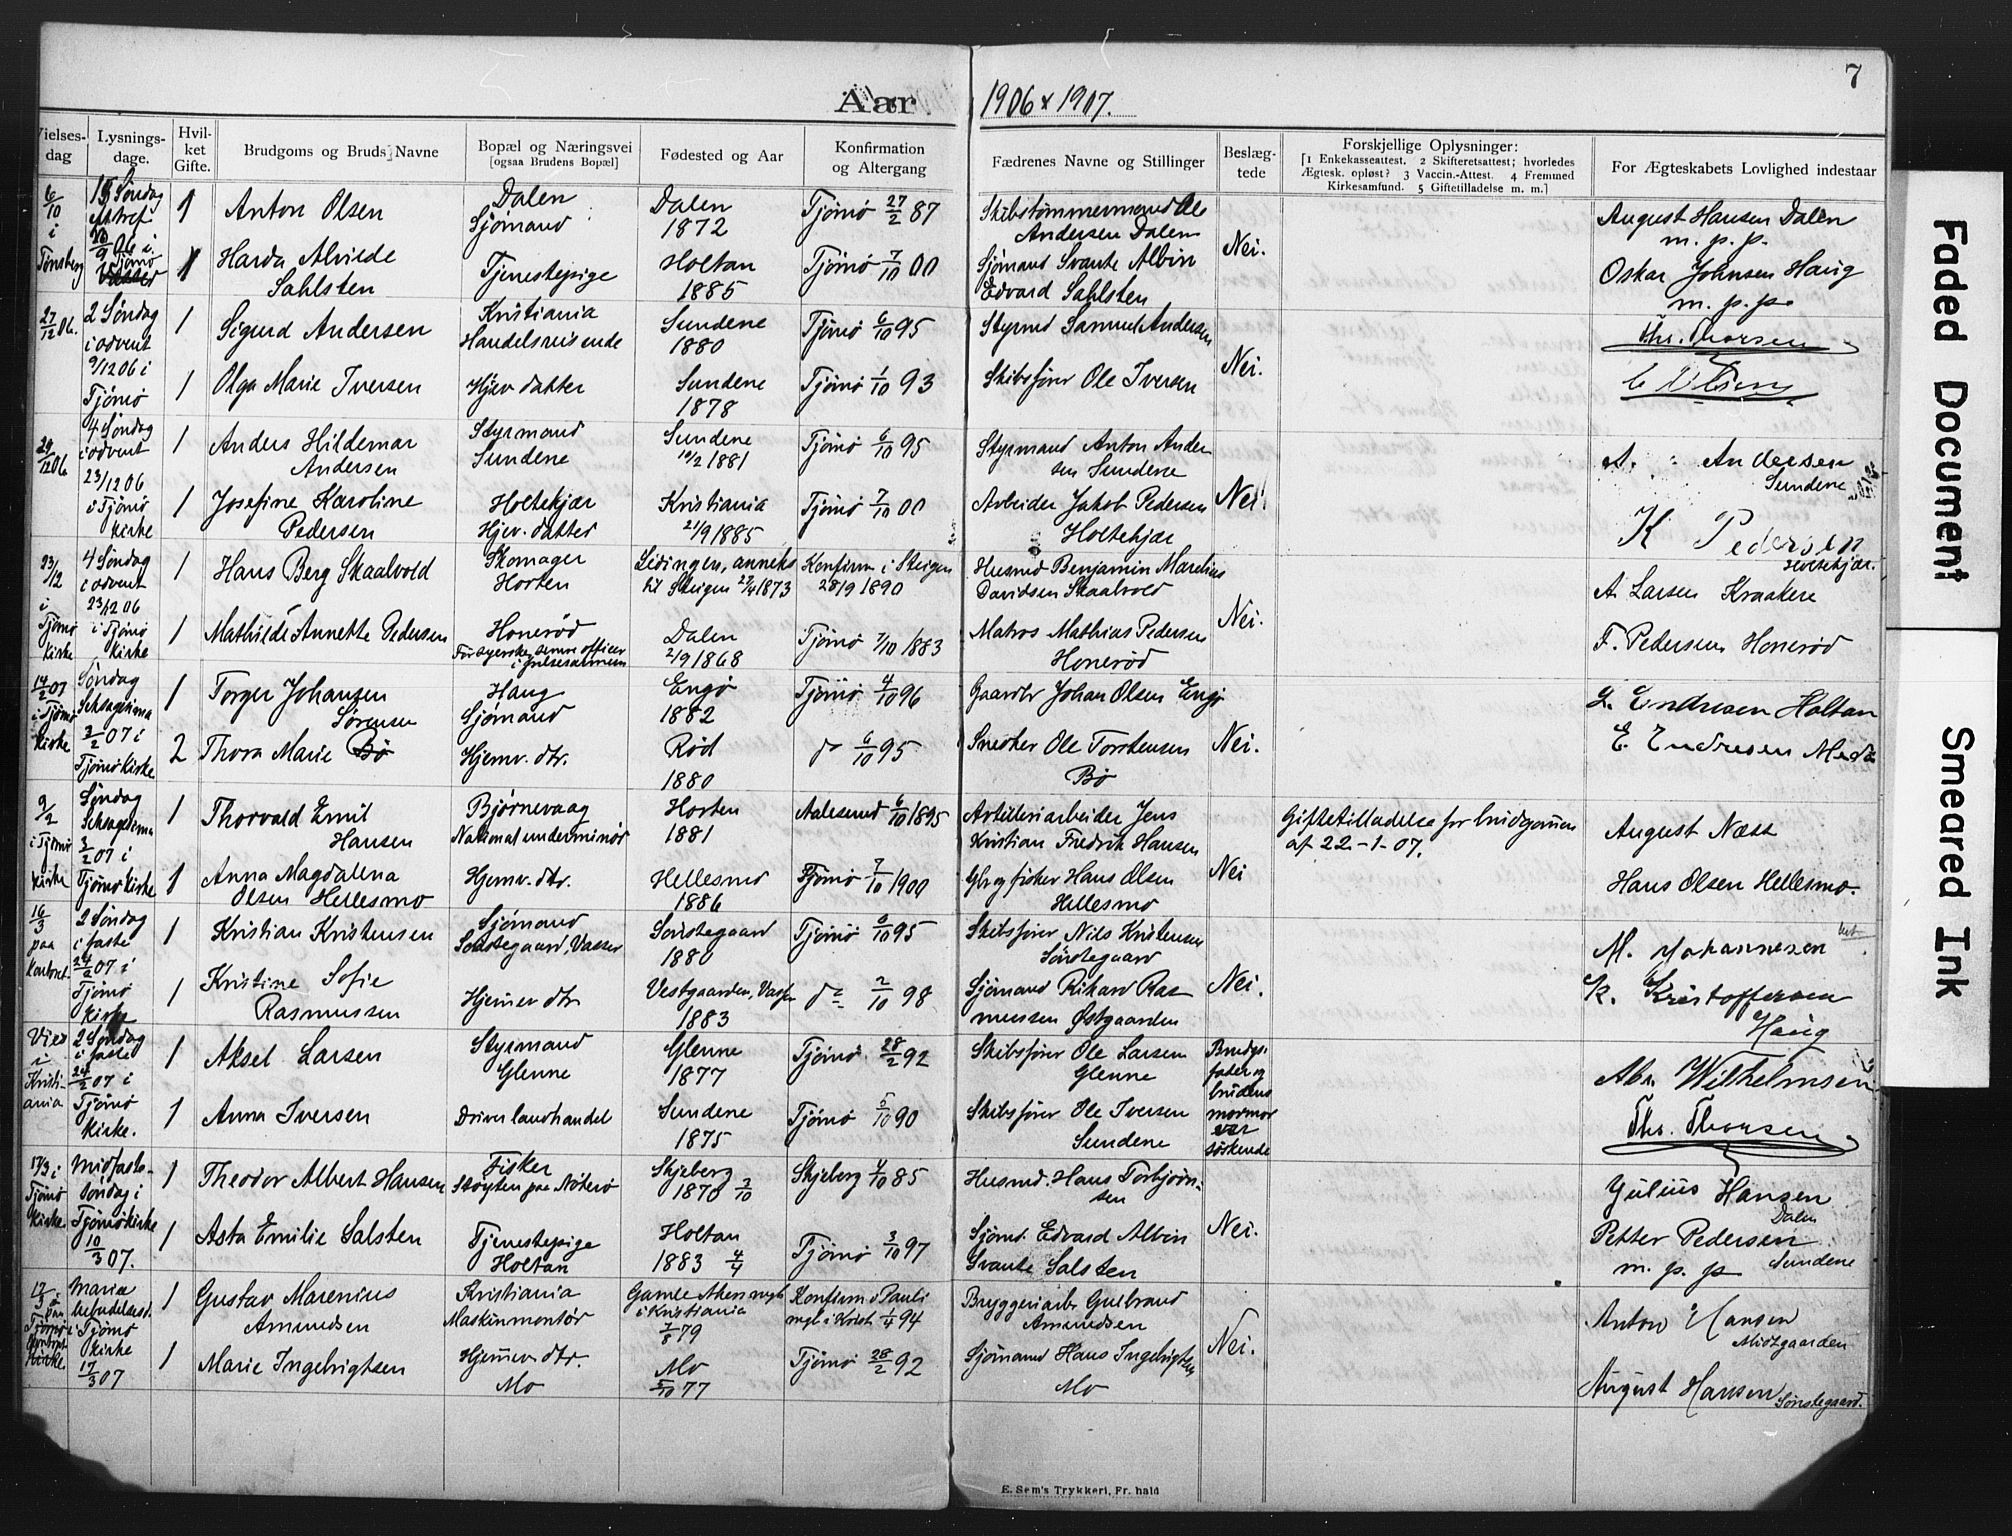 7
Aar 1906 & 1907.
Vielses-dag
Lysnings-dage.
Hvil-ket Gifte.
Brudgoms og Bruds Navne
Bopæl og Næringsvei [ogsaa Brudens Bopæl]
Fødested og Aar
Konfirmation og Altergang
Fædrenes Navne og Stillinger
Beslæg-tede
Forskjellige Oplysninger:
[1 Enkekasseattest. 2 Skifteretsattest; hvorledes
Ægtesk. opløst? 3 Vaccin.-Attest. 4 Fremmed
Kirkesamfund. 5 Giftetilladelse m. m.]
For Ægteskabets Lovlighed indestaar
6/10 i Tønsberg
1 Anton Olsen
Dalen Sjømand
Dalen 1872
Tjømø 27/2 87
Skibstømmermand Ole Andersen Dalen
August Hansen Dalen m. p. p.
1 Harda Alvilde Sahlsten
Tjenestepige
Holtan 1885
Tjømø 7/10 00
Sjømand Svante Albin Edvard Sahlsten
Nei.
Oskar Johnsen Haug m. p. p.
27/12 06.
2 Søndag i advent 9/12 06 i Tjømø
1 Sigurd Andersen
Kristiania Handelsreisende
Sundene 1880
Tjømø 6/10 95
Styrmd Samuel Andersen
Thr. Thorsen
1 Olga Marie Iversen
Hjev. datter
Sundene 1878
Tjømø 1/10 93
Skibsfører Ole Iversen
Nei.
29/12 06
4 Søndag i advent 23/12 06 i Tjømø kirke
1 Anders Hildemar Andersen
Styrmand Sundene
Sundene 10/2 1881
Tjømø 6/10 95
Styrmand Anton Andersen Sundene
A. Andersen Sundene
1 Josefine Karoline Pedersen
Holtekjær Hjev. datter
Kristiania 21/9 1885
Tjømø 7/10 00
Arbeider Jakob Pedersen Holtekjær
Nei.
K Pedersen Holtekjær.
23/12 i Tjømø kirke
4 Søndag i advent 23/12 06 i Tjømø kirke
1 Hans Berg Skaalvold
Skomager Horten
Lødingen, anneks til Steigen 27/4 1873
Konfirm. i Steigen 28/9 1890
Husmd Benjamin Marelius Davidsen Skaalvold
A Larsen Kraakere
1 Mathilde Annette Pedersen
Honerød
Dalen 2/9 1868
Tjømø 7/10 1883
Matros Mathias Pedersen Honerød
Nei.
F. Pedersen Honerød
14/2 07 i Tjømø kirke
Søndag Seksagesima 3/2 07 i Tjømø kirke
1 Torger Johansen Sørensen
Haug Sjømand
Engø 1882
Tjømø 4/10 96
Gaardbr Johan Olsen Engø
L. Endresen Holtan
2 Thora Marie Bø
Hjemv. dtr.
Rød 1880
do 6/10 95
Snedker Ole Torstensen Bø
Nei.
E. Endresen Medø
9/2 i Tjømø kirke
Søndag Seksagesima 3/2 07 i Tjømø kirke
1 Thorvald Emil Hansen
Bjørnevaag National underminør
Horten 1881
Aalesund 6/10 1895
Artilleriarbeider Jens Kristian Fredrik Hansen
Giftetilladelse for brudgommen af 22-1-07.
August Næss
1 Anna Magdalena Olsen Hellesmo
Hjemv. dtr.
Hellesmo 1886
Tjømø 7/10 1900
Gbr og fisker Hans Olsen Hellesmo
Nei
Hans Olsen Hellesmo.
16/3 paa kontoret
2 Søndag i faste 24/2 07 i Tjømø kirke
1 Kristian Kristensen
Sjømand Sønstegaard, Vasser
Sønstegaard 1880
Tjømø 6/10 95
Skibsfører Nils Kristensen Sønstegaard
M. Johannesen
1 Kristine Sofie Rasmussen
Hjemv dtr
Vestgaarden, Vasser 1883
do 2/10 98
Sjømand Rikard Rasmussen Østgaarden
Nei.
K. Kristoffersen Haug
Vies i Kristiania
2 Søndag i faste 24/2 07 i Tjømø kirke.
1 Aksel Larsen
Styrmand Glenne
Glenne 1877
Tjømø 28/2 92
Skibsfører Ole Larsen Glenne
Brudgs. fader og brudens mormor var søskende
Abr. Wilhelmsen
1 Anna Iversen
Driver landhandel
Sundene 1875
Tjømø 5/10 90
Skibsfører Ole Iversen Sundene
Thr. Thorsen
17/3 i Tjømø kirke.
Midfaste-søndag i Tjømø kirke 10/3 07.
1 Theodor Albert Hansen
Fisker Støyten paa Nøterø
Skjeberg 1870 3/10
Skjeberg 4/10 85
Husmd. Hans Torbjørnsen
Julius Hansen Dalen
1 Asta Emilie Salsten
Tjenestepige Holtan
Holtan 1883 4/4
Tjømø 3/10 97
Sjømd. Edvard Albin Svante Salsten
Nei.
Petter Pedersen Sundene m. p. p
Mariæ bebudelsesd. i Tjømø kirke 17/3 07
1 Gustav Marenius Amundsen
Kristiania Maskinmontør
Gamle Akers mgt i Kristiania 7/8 79
Konfirm i Pauli mgt i Krist. 1/4 94
Bryggeriarb. Gulbrand Amundsen
Anton Hansen Midtgaarden
1 Marie Ingebrigtsen
Hjemv dtr. Mo
Mo 5/10 77
Tjømø 28/2 92
Sjømand Hans Ingebrigtsen Mo
Nei.
August Hansen Sønstegaard.
E. Sem's Trykkeri, Fr. hald
Faded Document
Smeared Ink